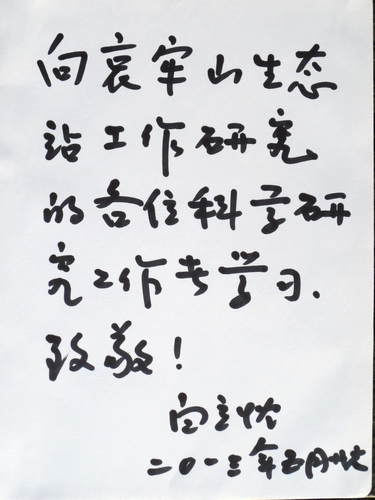 向哀牢山生态
站工作研究
的各位科学研
究工作者学习、
致敬！
二〇一三年五月